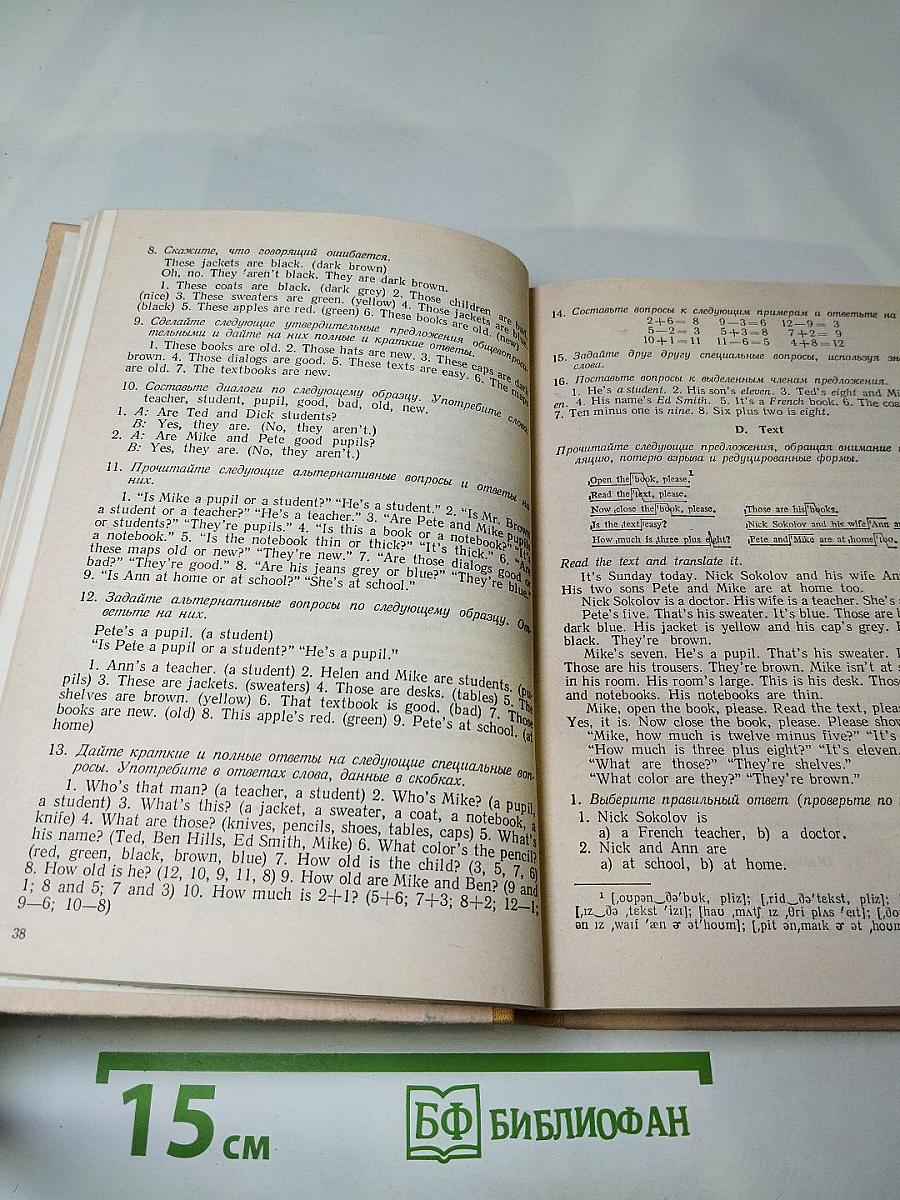 8. Скажите, что говорящий ошибается.
These jackets are black. (dark brown)
Oh, no. They aren't black. They are dark brown.
1. These coats are black. (dark grey) 2. Those children are bad.
(nice) 3. These sweaters are green. (yellow) 4. Those jackets are blue.
(black) 5. These apples are red. (green) 6. These books are old. (new)
9. Сделайте следующие утвердительные предложения общевопроси-
тельными и дайте на них полные и краткие ответы.
1. These books are old. 2. Those hats are new. 3. These caps are dark
brown. 4. Those dialogs are good. 5. These texts are easy. 6. The maps
are old. 7. The textbooks are new.
10. Составьте диалоги по следующему образцу. Употребите слова
teacher, student, pupil, good, bad, old, new.
1. A: Are Ted and Dick students?
B: Yes, they are. (No, they aren't.)
2. A: Are Mike and Pete good pupils?
B: Yes, they are. (No, they aren't.)
11. Прочитайте следующие альтернативные вопросы и ответы на
них.
1. "Is Mike a pupil or a student?" "He's a student." 2. "Is Mr. Brown
a student or a teacher?" "He's a teacher." 3. "Are Pete and Mike pupils
or students?" "They're pupils." 4. "Is this a book or a notebook?" "It's
a notebook." 5. "Is the notebook thin or thick?" "It's thick." 6. "Are
these maps old or new?" "They're new." 7. "Are those dialogs good or
bad?" "They're good." 8. "Are his jeans grey or blue?" "They're blue."
9. "Is Ann at home or at school?" "She's at school."
12. Задайте альтернативные вопросы по следующему образцу. От-
ветьте на них.
Pete's a pupil. (a student)
"Is Pete a pupil or a student?" "He's a pupil."
1. Ann's a teacher. (a student) 2. Helen and Mike are students. (pu-
pils) 3. These are jackets. (sweaters) 4. Those are desks. (tables) 5. The
shelves are brown. (yellow) 6. That textbook is good. (bad) 7. Those
books are new. (old) 8. This apple's red. (green) 9. Pete's at school. (at
home)
13. Дайте краткие и полные ответы на следующие специальные воп-
росы. Употребите в ответах слова, данные в скобках.
1. Who's that man? (a teacher, a student) 2. Who's Mike? (a pupil,
a student) 3. What's this? (a jacket, a sweater, a coat, a notebook, a
knife) 4. What are those? (knives, pencils, shoes, tables, caps) 5. What's
his name? (Ted, Ben Hills, Ed Smith, Mike) 6. What color's the pencil?
(red, green, black, brown, blue) 7. How old is the child? (3, 5, 7, 6)
8. How old is he? (12, 10, 9, 11, 8) 9. How old are Mike and Ben? (9 and
1; 8 and 5; 7 and 3) 10. How much is 2+1? (5+6; 7+3; 8+2; 12—1;
9—6; 10—8)
38
14. Составьте вопросы к следующим примерам и ответьте на
2+6= 8 9—3=6 12—9= 3
5—2= 3 5+3=8 7+2= 9
10+1=11 11—6=5 4+8=12
15. Задайте друг другу специальные вопросы, используя
слова.
16. Поставьте вопросы к выделенным членам предложения.
1. He's a student. 2. His son's eleven. 3. Ted's eight and
en. 4. His name's Ed Smith. 5. It's a French book. 6. The
7. Ten minus one is nine. 8. Six plus two is eight.
D. Text
Прочитайте следующие предложения, обращая внимание
ляцию, потерю взрыва и редуцированные формы.
Open the book, please.1
Read the text, please.
Now close the book, please. Those are his books.
Is the text easy? Nick Sokolov and his wife Ann
How much is three plus eight? Pete and Mike are at home too.
Read the text and translate it.
It's Sunday today. Nick Sokolov and his wife
His two sons Pete and Mike are at home too.
Nick Sokolov is a doctor. His wife is a teacher. She's
Pete's five. That's his sweater. It's blue. Those are
dark blue. His jacket is yellow and his cap's grey.
black. They're brown.
Mike's seven. He's a pupil. That's his sweater.
Those are his trousers. They're brown. Mike isn't at
in his room. His room's large. This is his desk.
and notebooks. His notebooks are thin.
Mike, open the book, please. Read the text,
Yes, it is. Now close the book, please. Please
"Mike, how much is twelve minus five?" "It's
"How much is three plus eight?" "It's eleven.
"What are those?" "They're shelves."
"What color are they?" "They're brown."
1. Выберите правильный ответ (проверьте по
1. Nick Sokolov is
a) a French teacher, b) a doctor.
2. Nick and Ann are
a) at school, b) at home.
1 [ˌoupən‿ðə'buk, pliz]; [ˌrid‿ðə'tekst, pliz];
[ˌɪz‿ðə ˌtekst 'izɪ]; [hau ˌmʌtʃ ɪz ˌθri plʌs 'eɪt];
ən ɪz ˌwaɪf 'æn ər ət'houm]; [ˌpit ənˌmaɪk ər ət
15 см
БФ БИБЛИОФАН